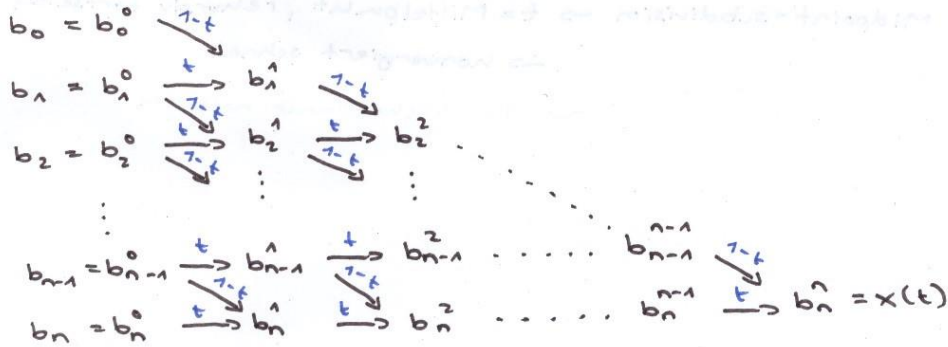 b₀ = b₀⁰ 1-t
b₁ = b₁⁰ t b₁¹ 1-t
1-t
b₂ = b₂⁰ t b₂¹ t b₂²
1-t 1-t
⋮ ⋮ ⋮
bₙ₋₁ = bₙ₋₁⁰ t bₙ₋₁¹ t bₙ₋₁² ...... bₙ₋₁ⁿ⁻¹ 1-t
1-t 1-t
bₙ = bₙ⁰ t bₙ¹ t bₙ² ...... bₙⁿ⁻¹ t bₙⁿ = x(t)